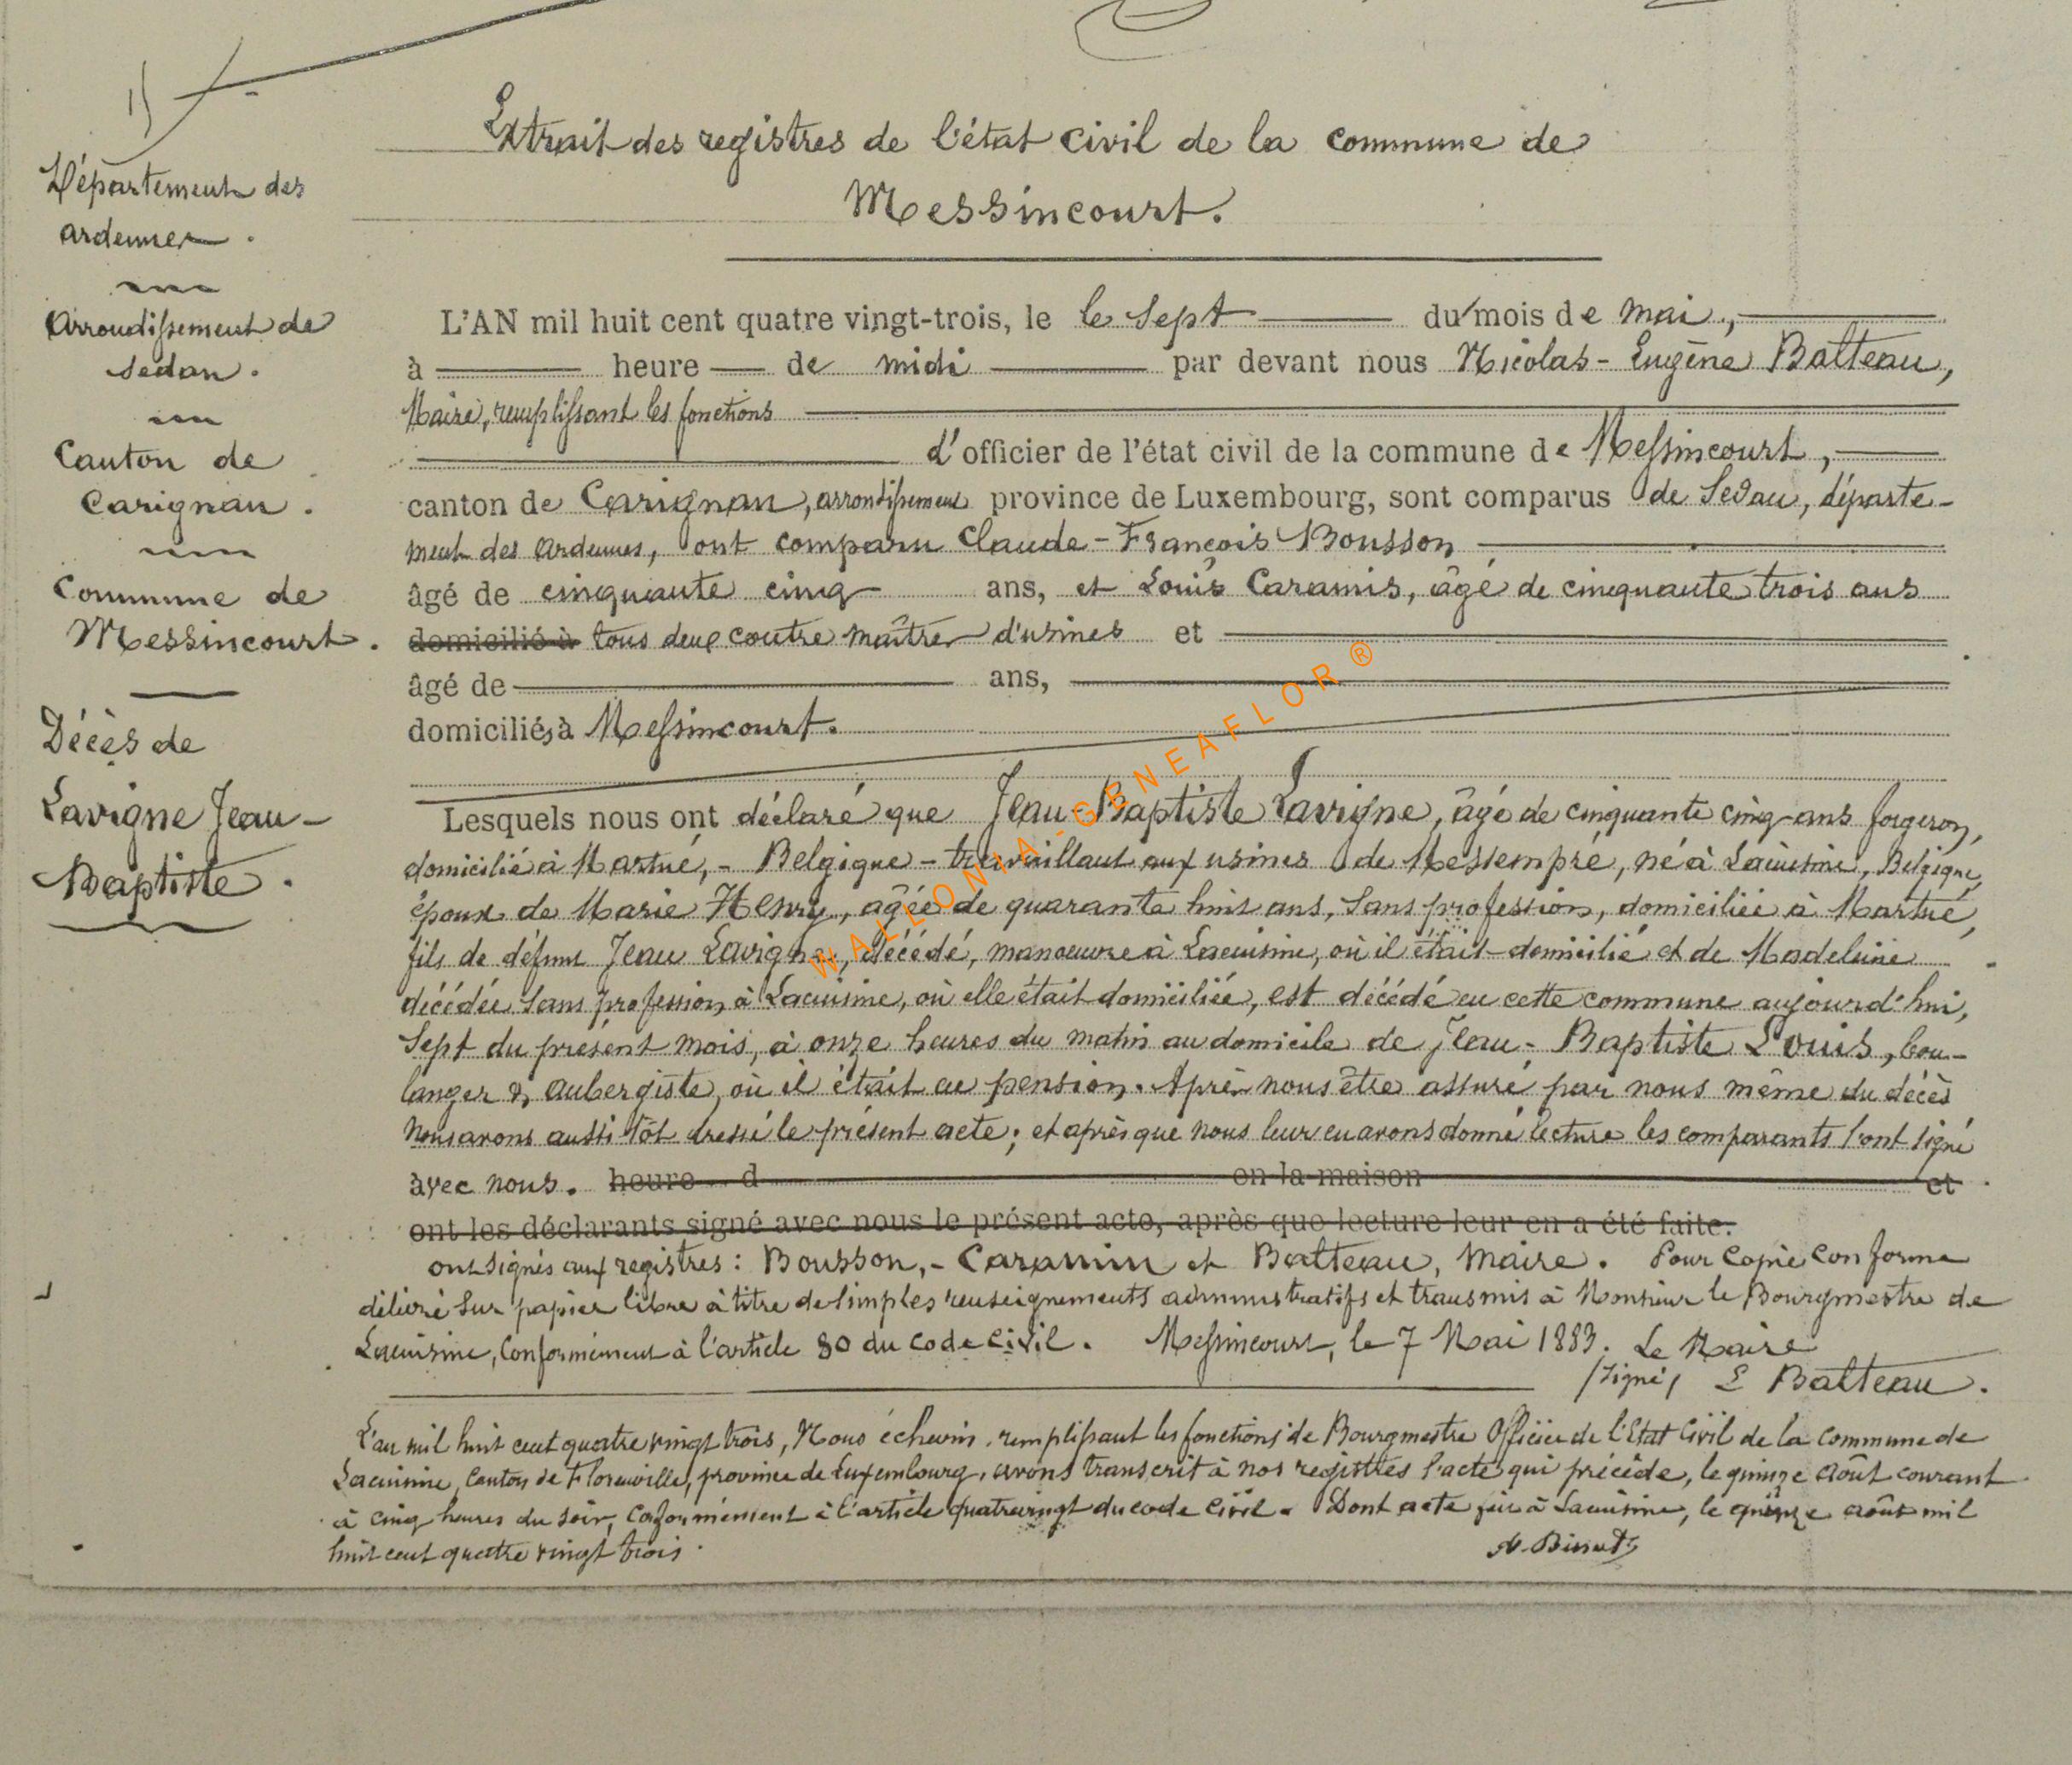 Extrait des registres de l'état civil de la commune de
Messincourt.
Département des
ardennes.
Arrondissement de
Sedan.
Canton de
Carignan.
Commune de
Messincourt.
Décès de
Lavigne Jean-
Baptiste.
L'AN mil huit cent quatre vingt-trois, le le sept du mois de mai,
à heure de midi par devant nous Nicolas-Eugène Balteau,
Maire, remplissant les fonctions
d'officier de l'état civil de la commune de Messincourt,
canton de Carignan, arrondissement province de Luxembourg, sont comparus de Sedan, départe-
ment des Ardennes, ont comparu Claude-François Bousson
âgé de cinquante cinq ans, et Louis Caramis, âgé de cinquante trois ans
domicilié à tous deux contre maîtres d'usines et
âgé de ans,
domiciliés à Messincourt.
Lesquels nous ont déclaré que Jean-Baptiste Lavigne, âgé de cinquante cinq ans forgeron,
domicilié à Martué, - Belgique - travaillant aux usines de Messempré, né à Lacuisine, Belgique,
époux de Marie Henry, âgée de quarante huit ans, sans profession, domiciliée à Martué,
fils de défunt Jean Lavigne, décédé, manoeuvre à Lacuisine, où il était domicilié et de Madeleine
décédée sans profession à Lacuisine, où elle était domiciliée, est décédé en cette commune aujourd'hui,
sept du présent mois, à onze heures du matin au domicile de Jean-Baptiste Louis, bou-
langer & aubergiste, où il était en pension. Après nous être assuré par nous même du décès
nous avons aussi tôt dressé le présent acte; et après que nous leur en avons donné lecture les comparants l'ont signé
avec nous. heure d en la maison et
ont les déclarants signé avec nous le présent acte, après que lecture leur en a été faite.
ont signés aux registres: Bousson, - Caramin et Balteau, Maire. Pour copie conforme
délivré sur papier libre à titre de simples renseignements administratifs et transmis à Monsieur le Bourgmestre de
Lacuisine, Conformément à l'article 80 du code civil. Messincourt, le 7 Mai 1883. Le Maire
/signé/ E Balteau.
L'an mil huit cent quatre vingt trois, Nous échevin, remplissant les fonctions de Bourgmestre Officier de l'Etat Civil de la commune de
Lacuisine, Canton de Florenville, province de Luxembourg, avons transcrit à nos registres l'acte qui précède, le quinze août courant
à cinq heures du soir, conformément à l'article quatrevingt du code civil. Dont acte fait à Lacuisine, le quinze août mil
huit cent quatre vingt trois.
WALLONIA-GENEAFLOR®